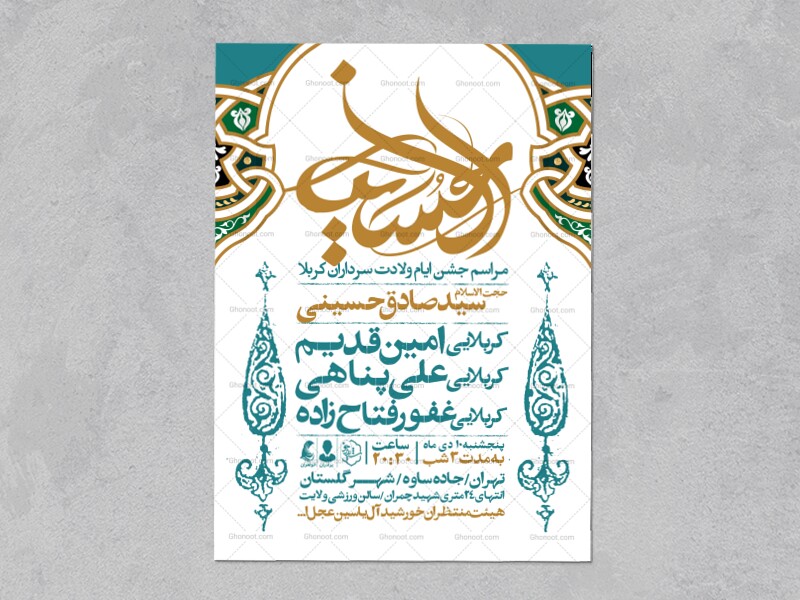 مراسم جشن ایام ولادت سرداران کربلا
حجت الاسلام
سید صادق حسینی
کربلایی امین قدیم
کربلایی علی پناهی
کربلایی غفور فتاح زاده
پنجشنبه ۱۰ دی ماه
به مدت ۳ شب
ساعت
۲۰:۳۰
تهران/جاده ساوه/شهر گلستان
انتهای ۲۴متری شهید چمران/سالن ورزشی ولایت
هیئت منتظران خورشید آل یاسین عجل ا...
Ghonoot.com